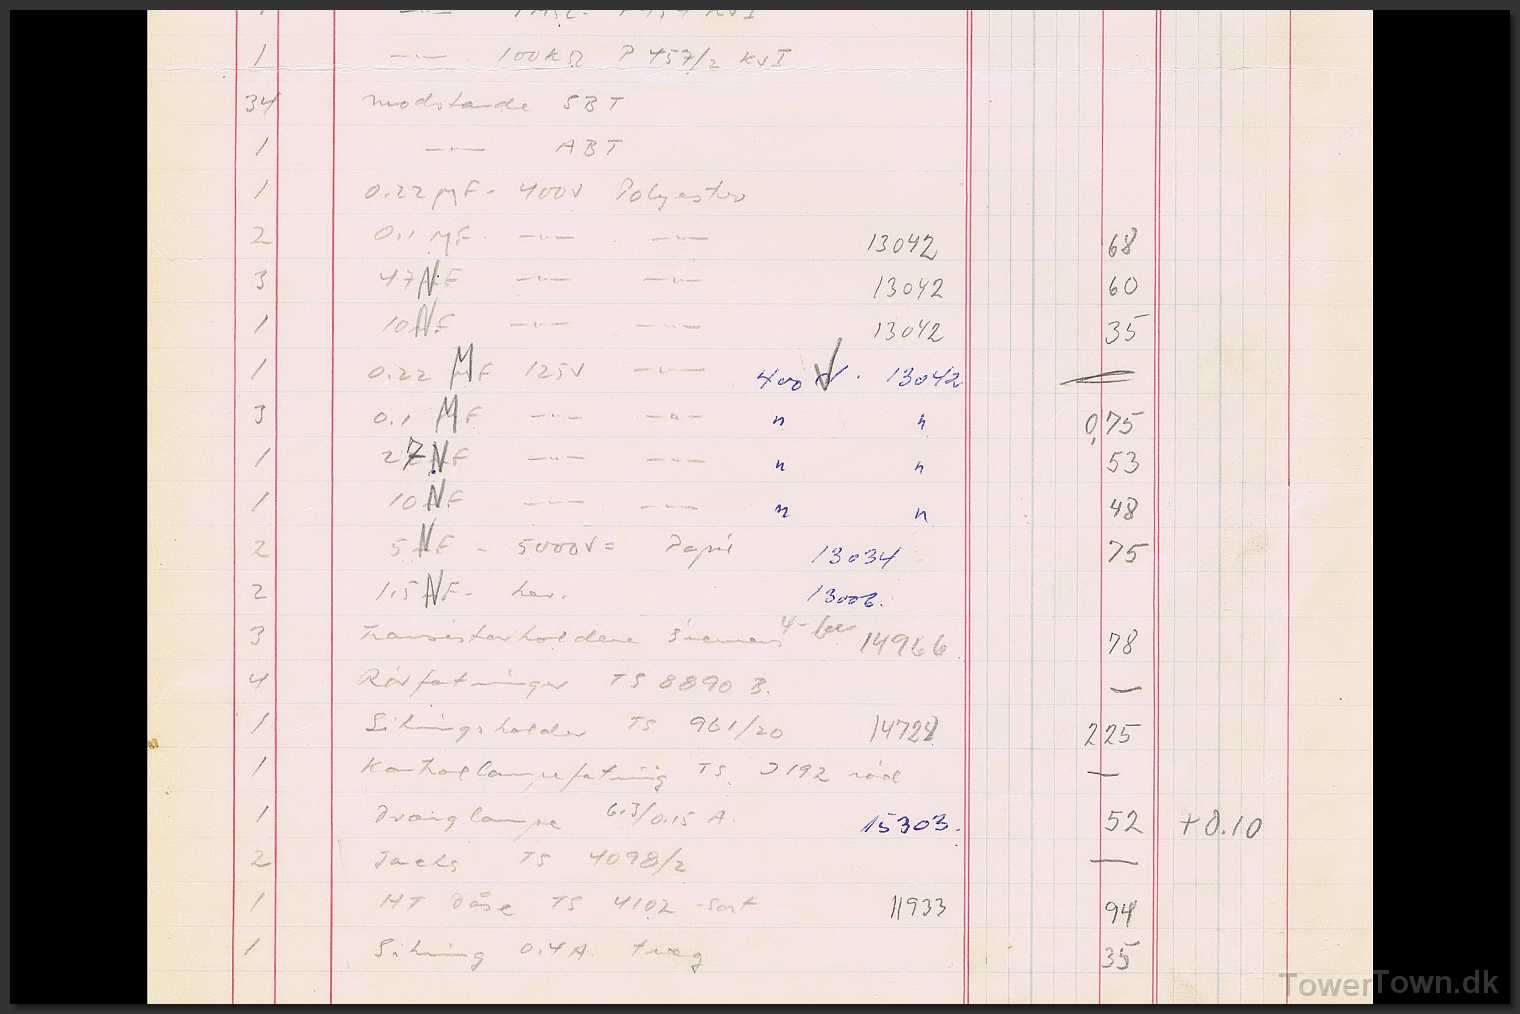 1 —"— 100KΩ P 457/2 KVI
34 modstande SBT
1 —"— ABT
1 0.22 MF - 400V Polyester
2 0.1 MF. —"— —"— 13042 68
3 47 NF —"— —"— 13042 60
1 10 NF —"— —"— 13042 35
1 0.22 MF 125V —"— 400 V. 13042 —
3 0.1 MF —"— —"— " " 0,75
1 27 NF —"— —"— " " 53
1 10 NF —"— —"— " " 48
2 5 NF - 5000V= Papir 13034 75
2 1.5 NF - ker. 13006.
3 Transistorholdere Siemens 4-ben 14966 78
4 Rörfatninger TS 8890 B. —
1 Sikringsholder TS 961/20 14728 225
1 Kontrollampefatning TS. J 192 röd —
1 Dværglampe 6.3/0.15 A. 15303. 52 +0.10
2 Jacks TS 4098/2 —
1 HT Dåse TS 4102 - Sort 11933 94
1 Sikring 0.4A. træg 35
TowerTown.dk